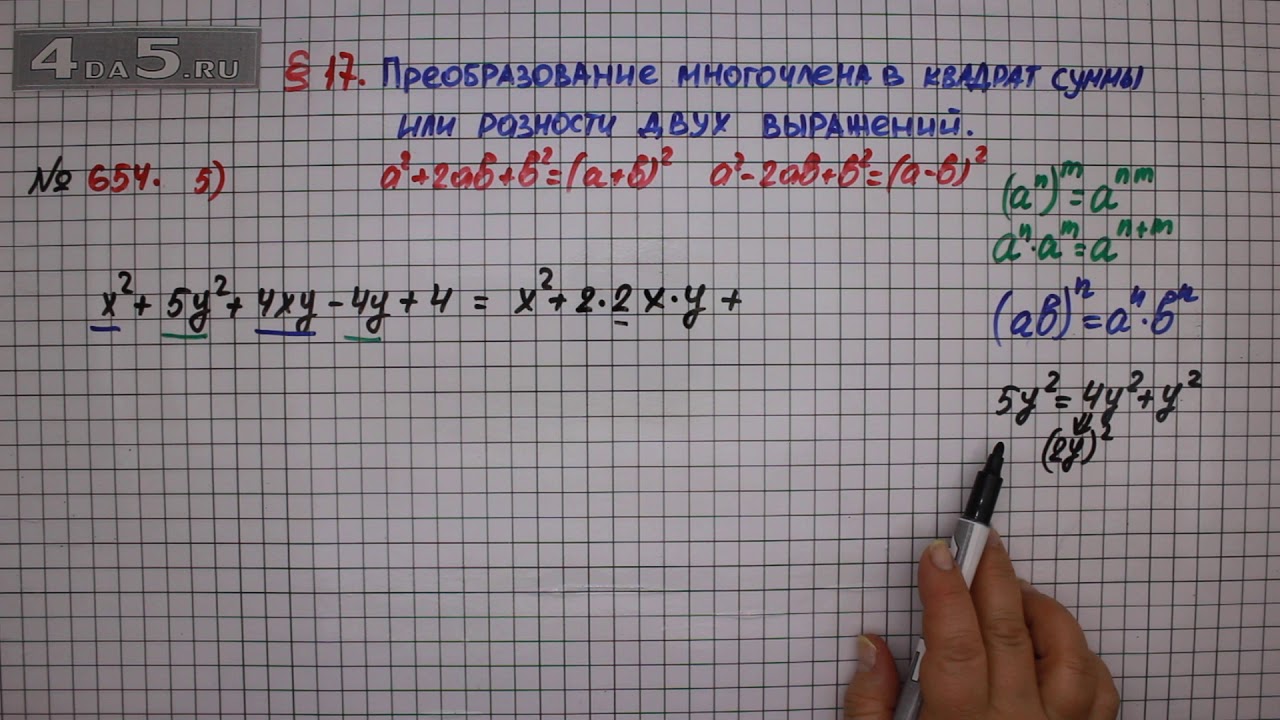 4DA5.RU
§ 17. Преобразование многочлена в квадрат суммы
или разности двух выражений.
№ 654. 5) a²+2ab+b²=(a+b)² a²-2ab+b²=(a-b)²
(aⁿ)ᵐ=aⁿᵐ
aⁿ·aᵐ=aⁿ⁺ᵐ
x²+5y²+4xy-4y+4 = x²+2·2x·y+
(ab)ⁿ=aⁿ·bⁿ
5y²=4y²+y²
(2y)²